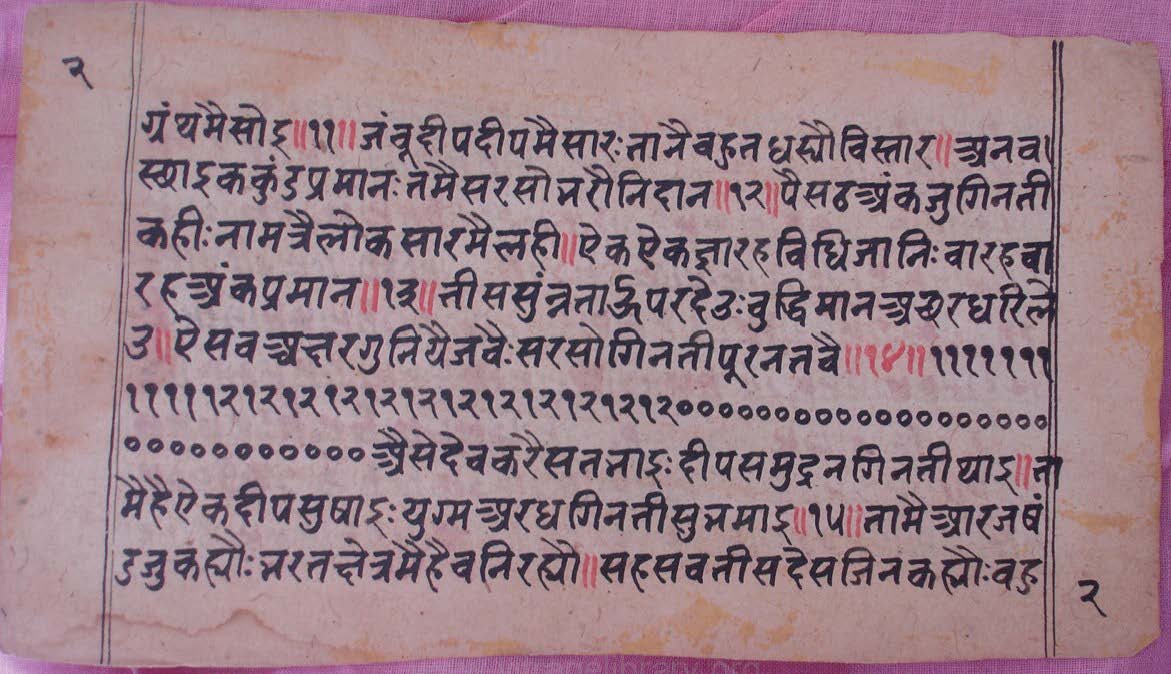 २
ग्रंथमैसोइ॥११॥जंबूदीपदीपमैसारःतानैबहुतधर्यौविस्तार॥अनवा
स्छाइककुंडप्रमानःतमैसरसौभरौनिदान॥१२॥पैसठअंकजुगिनती
कहीःनामत्रैलोकसारमैलही॥ऐकऐकग्यारहविधिजानिःवारहवा
रहअंकप्रमान॥१३॥तीससुंन्नताऊपरदेउःवुद्धिमानअछरधरिले
उ॥ऐसवअक्षरगुनियैजवैःसरसोगिनतीपूरनतवै॥१४॥११११११११
१११११२१२१२१२१२१२१२१२१२१२१२१२०००००००००००००००००००
००००००००००००अैसेदेवकरैसतभाइःदीपसमुद्रनगिनतीथाइ॥ता
मैहैऐकदीपसुषाइःयुग्मअरधगिनतीसुभमाइ॥१५॥तामैआरजषं
डजुकह्यौःभरतक्षेत्रमैहैवनिरह्यौ॥सहसवतीसदेसजिनकह्यौःवहु
२